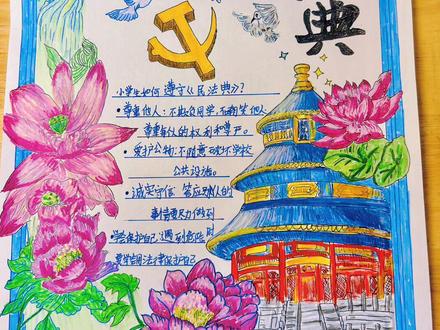 典
小学生如何遵守《民法典》?
• 尊重他人:不欺负同学,不嘲笑他人
尊重每个人的权利和尊严。
• 爱护公物:不随意破坏学校
公共设施。
• 诚实守信 答应别人的
事情要尽力做到
学会保护自己 遇到危险时
要学会用法律保护自己